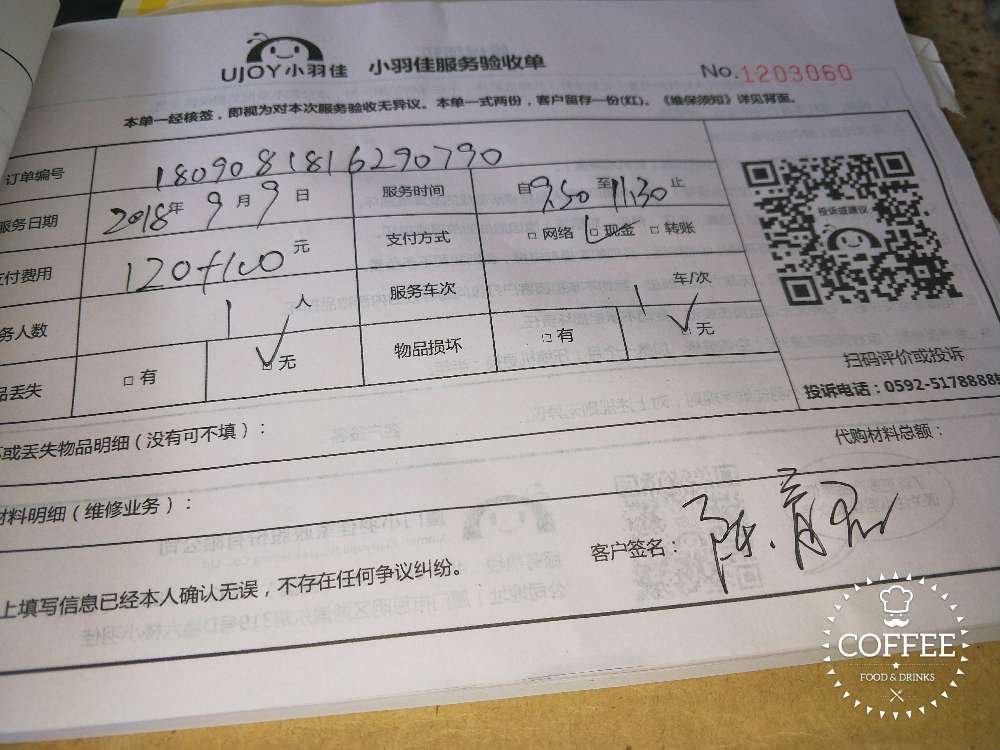 UJOY小羽佳 小羽佳服务验收单
No.1203060
本单一经核签，即视为对本次服务验收无异议。本单一式两份，客户留存一份(红)。《维保须知》详见背面。
订单编号 1809081816290790
服务日期 2018年9月9日 服务时间 自9.50至11.30止
支付费用 120+100元 支付方式 □网络 □现金 □转账
务人数 1人 服务车次 车/次
品丢失 □有 □无 物品损坏 □有 □无
投诉或建议
扫码评价或投诉
投诉电话：0592-5178888
或丢失物品明细（没有可不填）：
代购材料总额：
材料明细（维修业务）：
上填写信息已经本人确认无误，不存在任何争议纠纷。
客户签名：陈
COFFEE
FOOD & DRINKS